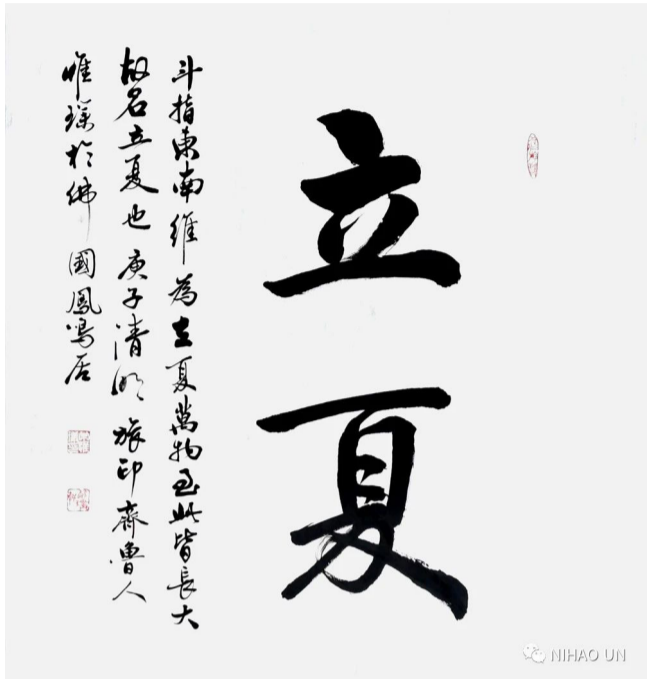 立夏
斗指東南維為立夏萬物至此皆長大
故名立夏也庚子清明旅印齊魯人
惟瑔於佛國鳳鳴居
NIHAO UN